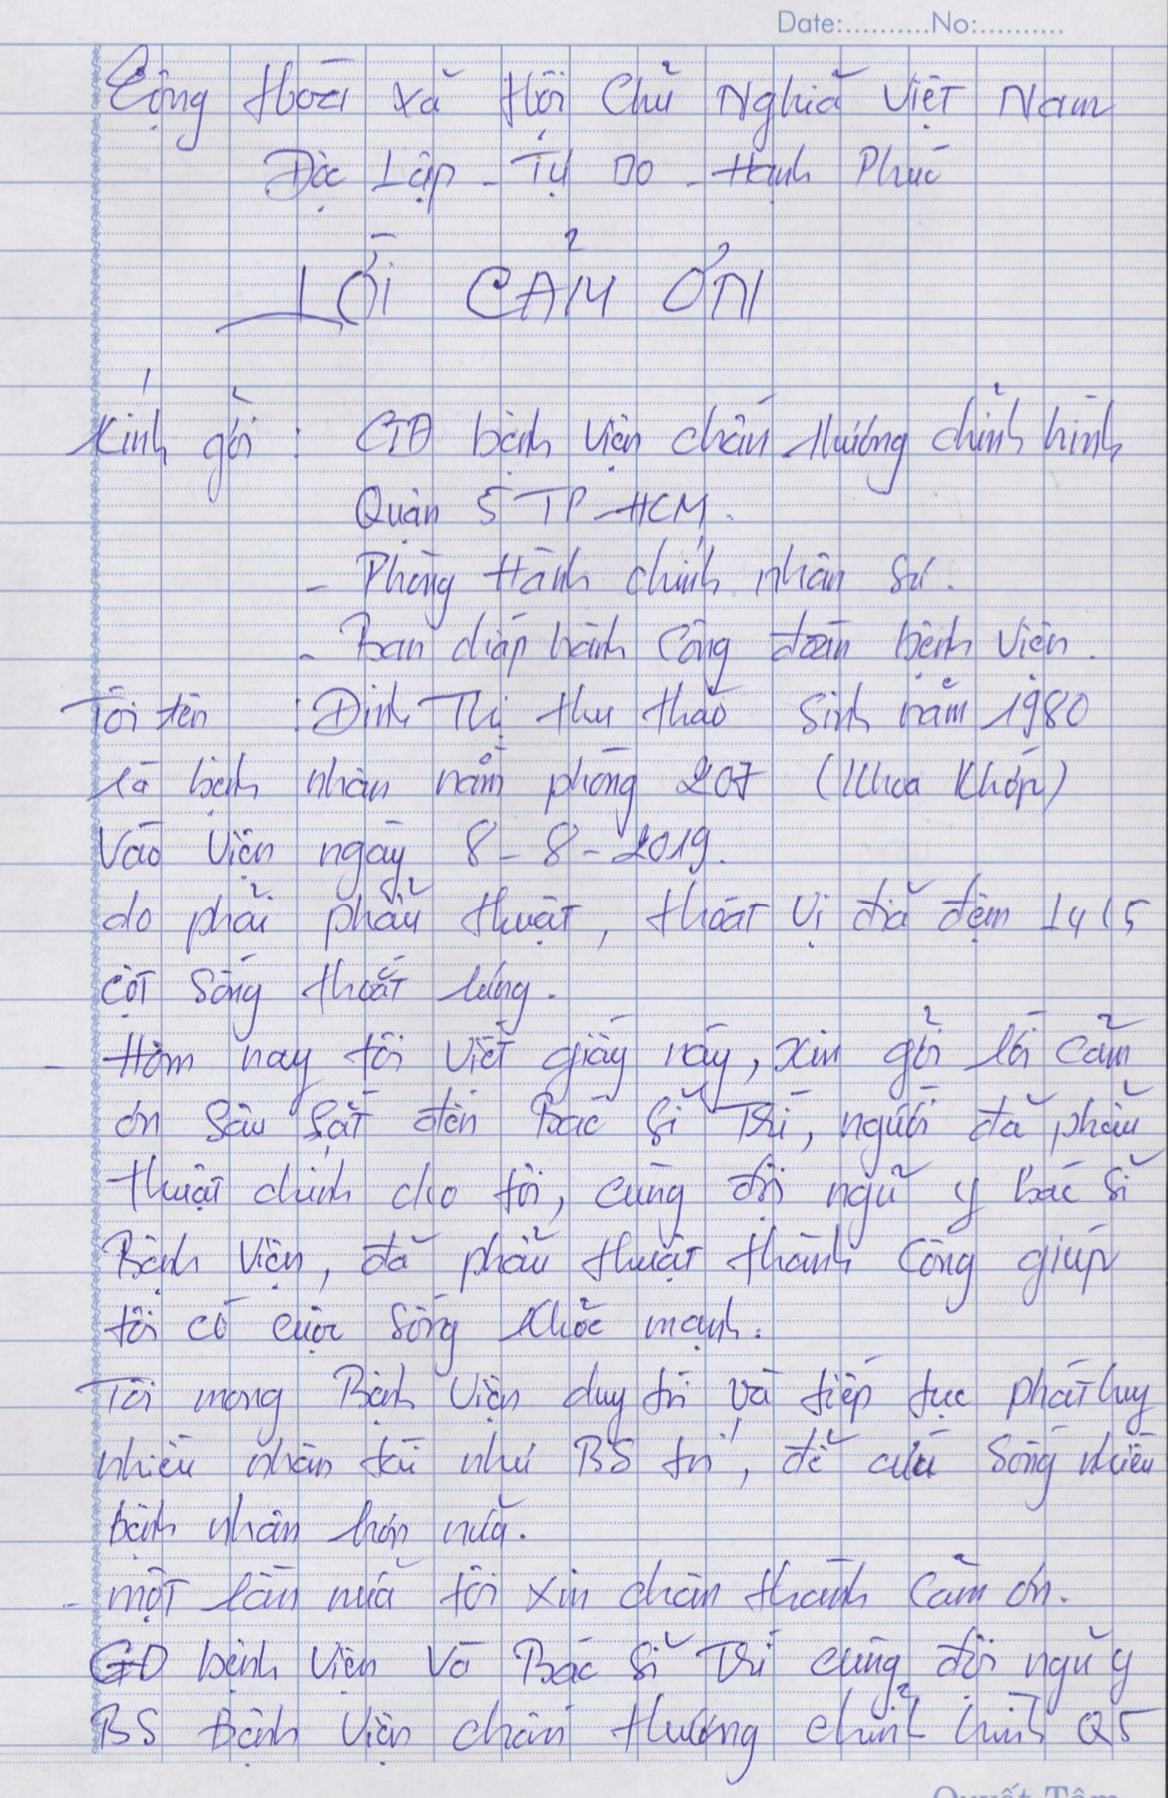 Date:..........No:..........
Cộng Hòa Xã Hội Chủ Nghĩa Việt Nam
Độc Lập - Tự Do - Hạnh Phúc
LỜI CẢM ƠN
Kính gởi : GĐ bệnh viện chấn thương chỉnh hình
Quận 5 TP HCM.
- Phòng Hành chính nhân sự.
- Ban chấp hành Công đoàn bệnh viện.
Tôi tên : Đinh Thị Thu Thảo Sinh năm 1980
là bệnh nhân nằm phòng 207 (Khoa Khớp)
Vào viện ngày 8-8-2019.
do phải phẩu thuật, thoát vị đĩa đệm L4 L5
cột sống thoắt lưng.
- Hôm nay tôi viết giấy này, xin gởi lời cảm
ơn sâu sắt đến Bác sĩ Trí, người đã phẩu
thuật chính cho tôi, cùng đội ngũ y bác sĩ
Bệnh viện, đã phẩu thuật thành Công giúp
tôi có cuộc sống khỏe mạnh.
Tôi mong Bệnh viện duy trì và tiếp tục phát huy
nhiều nhân tài như BS trí, để cứu sống nhiều
bệnh nhân hơn nữa.
- một lần nữa tôi xin chân thành cảm ơn.
GĐ bệnh viện và Bác sĩ Trí cùng đội ngũ y
BS Bệnh viện chấn thương chỉnh hình Q5